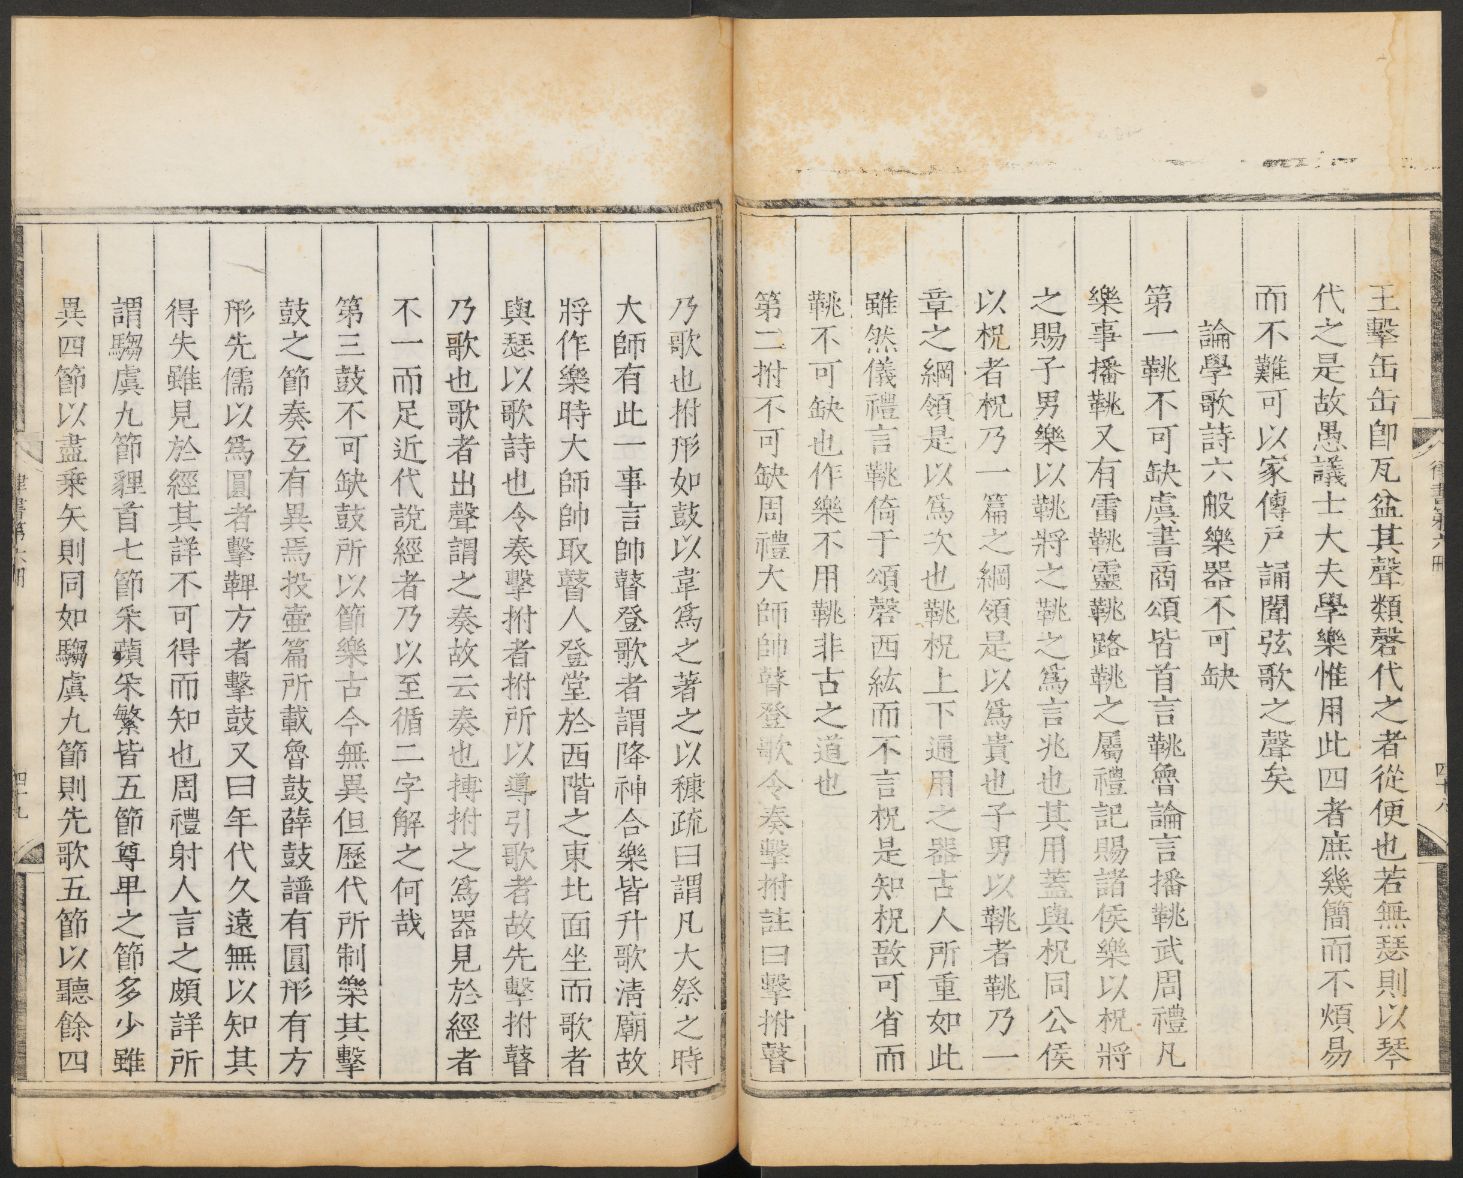 王擊缶缶卽瓦盆其聲類磬代之者從便也若無瑟則以琴
代之是故愚議士大夫學樂惟用此四者庶幾簡而不煩易
而不難可以家傳戶誦聞弦歌之聲矣
論學歌詩六般樂器不可缺
第一鞉不可缺虞書商頌皆首言鞉魯論言播鞉武周禮凡
樂事播鞉又有雷鞉靈鞉路鞉之屬禮記賜諸侯樂以柷將
之賜子男樂以鞉將之鞉之爲言兆也其用蓋與柷同公侯
以柷者柷乃一篇之綱領是以爲貴也子男以鞉者鞉乃一
章之綱領是以爲次也鞉柷上下通用之器古人所重如此
雖然儀禮言鞉倚于頌磬西紘而不言柷是知柷敔可省而
鞉不可缺也作樂不用鞉非古之道也
第二拊不可缺周禮大師帥瞽登歌令奏擊拊註曰擊拊瞽
律書第六冊
四十八
乃歌也拊形如鼓以韋爲之著之以穅疏曰謂凡大祭之時
大師有此一事言帥瞽登歌者謂降神合樂皆升歌淸廟故
將作樂時大師帥取瞽人登堂於西階之東北面坐而歌者
與瑟以歌詩也令奏擊拊者拊所以導引歌者故先擊拊瞽
乃歌也歌者出聲謂之奏故云奏也搏拊之爲器見於經者
不一而足近代說經者乃以至循二字解之何哉
第三鼓不可缺鼓所以節樂古今無異但歷代所制樂其擊
鼓之節奏互有異焉投壷篇所載魯鼓薛鼓譜有圓形有方
形先儒以爲圓者擊鞞方者擊鼓又曰年代久遠無以知其
得失雖見於經其詳不可得而知也周禮射人言之頗詳所
謂騶虞九節貍首七節采蘋采繁皆五節尊卑之節多少雖
異四節以盡乗矢則同如騶虞九節則先歌五節以聽餘四
律書第六冊
四十九